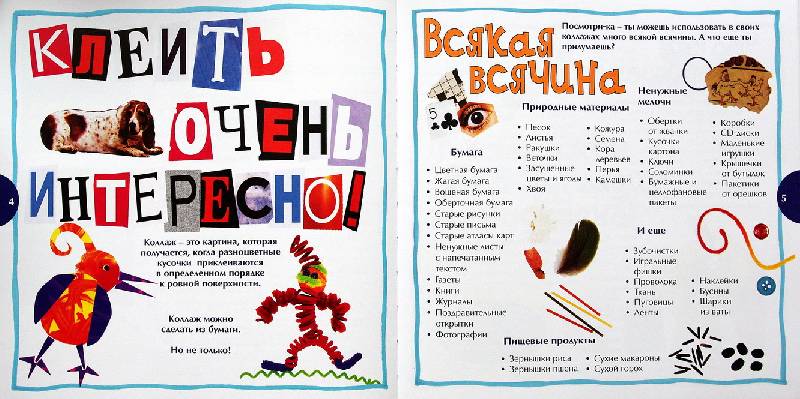 Клеить
очень
интересно!
Коллаж – это картина, которая
получается, когда разноцветные
кусочки приклеиваются
в определенном порядке
к ровной поверхности.
Коллаж можно
сделать из бумаги.
Но не только!
4
Всякая
всячина
Посмотри-ка – ты можешь использовать в своих
коллажах много всякой всячины. А что еще ты
придумаешь?
5
Бумага
• Цветная бумага
• Жатая бумага
• Вощеная бумага
• Оберточная бумага
• Старые рисунки
• Старые письма
• Старые атласы карт
• Ненужные листы
с напечатанным
текстом
• Газеты
• Книги
• Журналы
• Поздравительные
открытки
• Фотографии
Природные материалы
• Песок
• Листья
• Ракушки
• Веточки
• Засушенные
цветы и ягоды
• Хвоя
• Кожура
• Семена
• Кора
деревьев
• Перья
• Камешки
Ненужные
мелочи
• Обертки
от жвачки
• Кусочки
картона
• Ключи
• Соломинки
• Бумажные и
целлофановые
пакеты
• Коробки
• CD диски
• Маленькие
игрушки
• Крышечки
от бутылок
• Пакетики
от орешков
И еще
• Зубочистки
• Игральные
фишки
• Проволока
• Ткань
• Пуговицы
• Ленты
• Наклейки
• Бусины
• Шарики
из ваты
Пищевые продукты
• Зернышки риса
• Зернышки пшена
• Сухие макароны
• Сухой горох
5